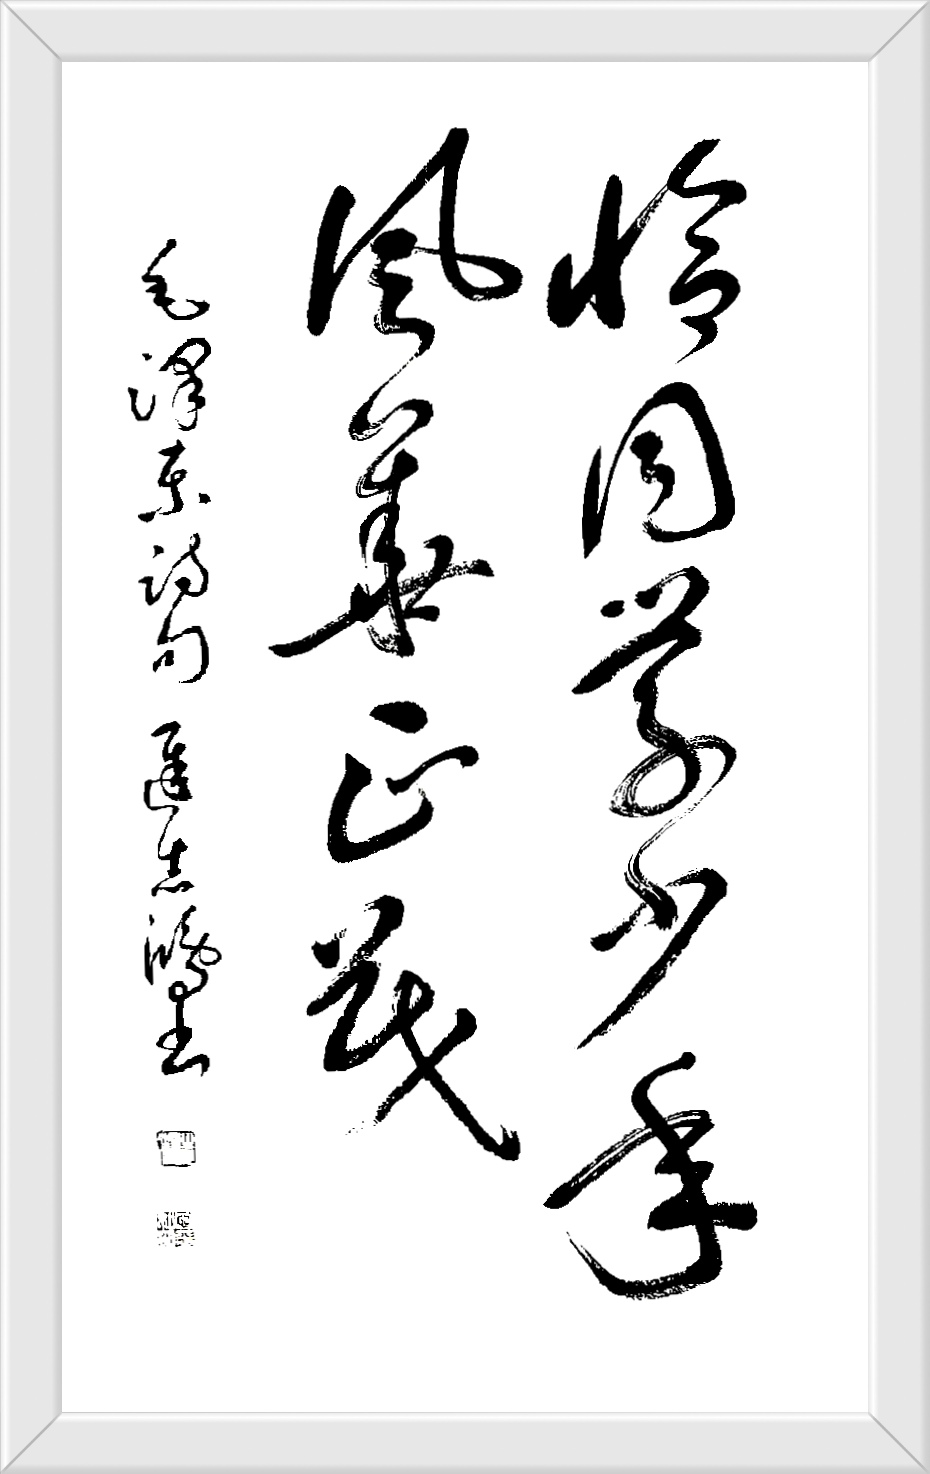 恰同学少年
风华正茂
毛泽东诗句 迟志鸿书